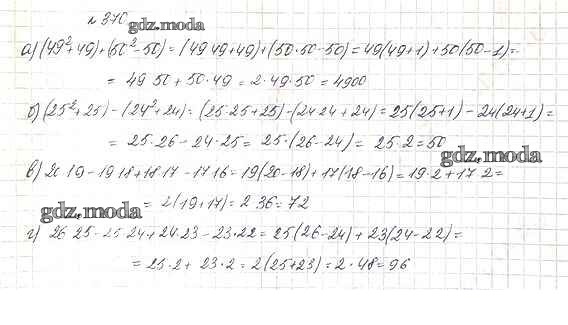 № 370
gdz.moda
а) (49²+49)+(50²-50)=(49·49+49)+(50·50-50)=49(49+1)+50(50-1)=
= 49·50+50·49=2·49·50=4900
б) (25²+25)-(24²+24)=(25·25+25)-(24·24+24)=25(25+1)-24(24+1)=
= 25·26-24·25=25·(26-24)=25·2=50
gdz.moda
в) 20·19-19·18+18·17-17·16=19(20-18)+17(18-16)=19·2+17·2=
= 2(19+17)=2·36=72
gdz.moda
г) 26·25-25·24+24·23-23·22=25(26-24)+23(24-22)=
= 25·2+23·2=2(25+23)=2·48=96